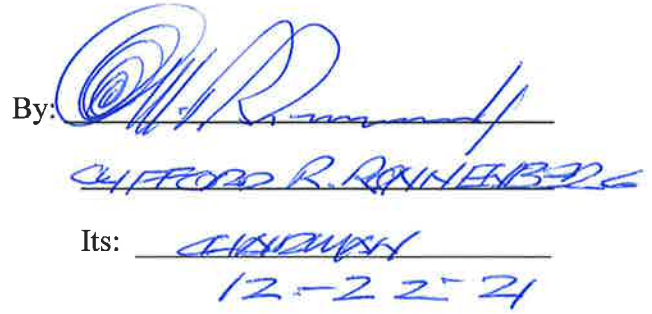 By:
CLIFFORD R. RONNENBERG
Its: CHAIRMAN
12-22-21